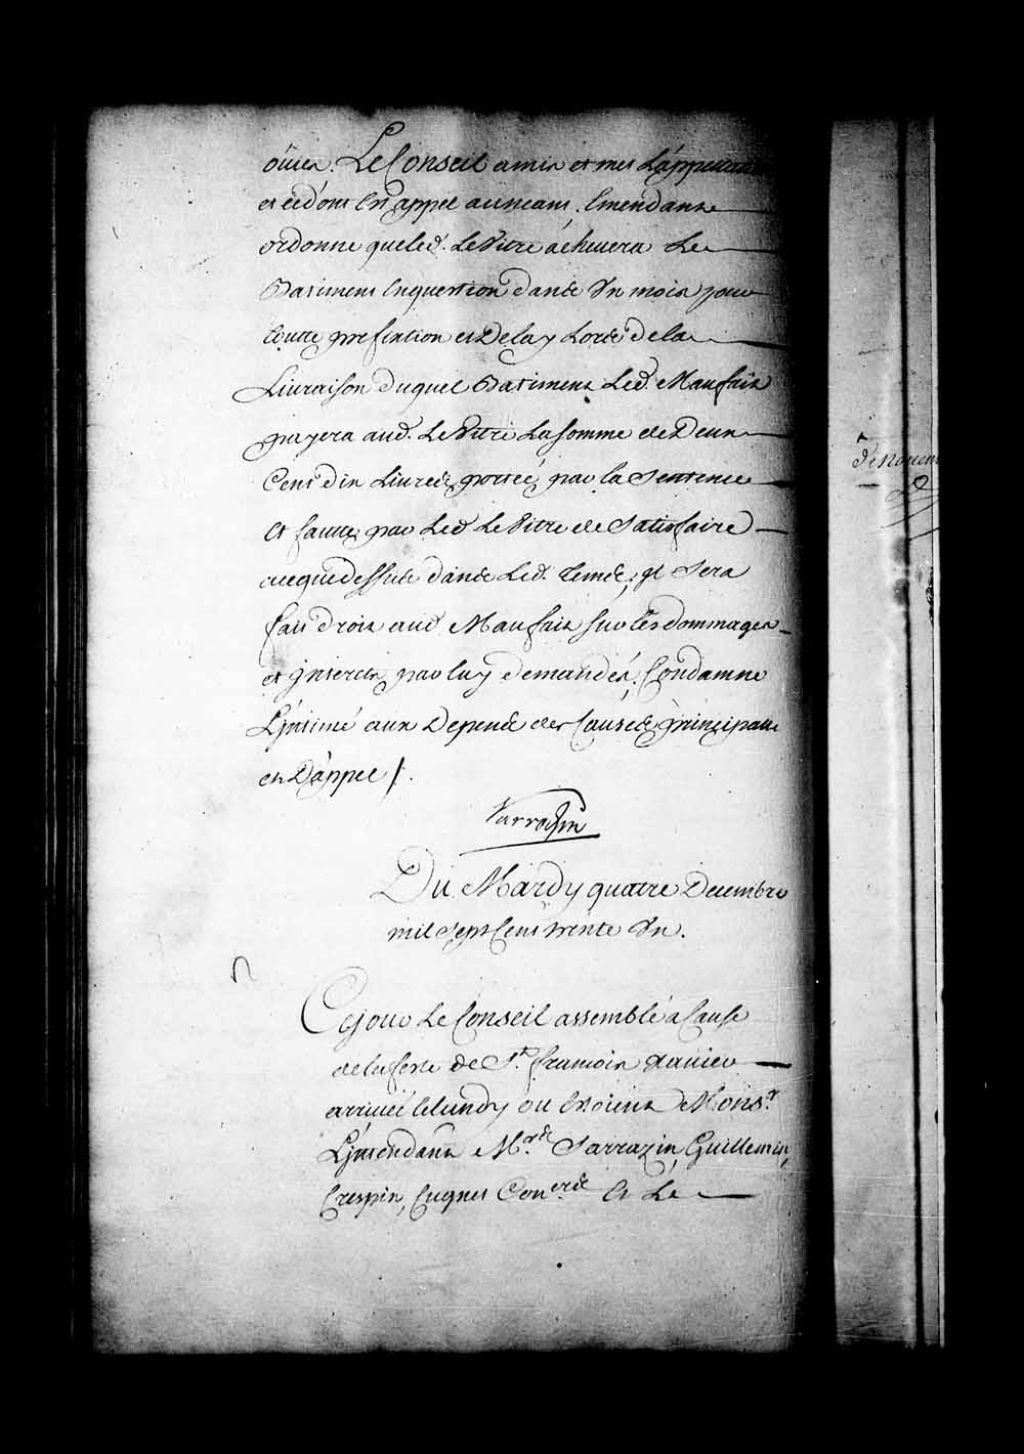 ouies. Le Conseil a mis et met L'appellation
et ce dont Est appel au neant, Emendant
ordonne que led. Le Vitre achevera Le
Batiment En question dans Un mois pour
toutte prefixtion et Delay Lors de la
Livraison duquel Batiment Led. Maufait
payera aud. Le Vitre La somme de Deux
Cent dix Livres portée par la Sentence
Et faute par Led Le Vitre de Satisfaire
a ce que dessus dans Led. tems, il Sera
fait droit aud Maufait sur les dommages
et jnterets par luy demandés, Condamne
L'jntimé aux Depens des Causes principalle
et D'appel /.
Sarrazin
Du Mardy quatre Decembre
mil sept Cent trente Un.
Ce jour Le Conseil assemblé a Cause
de la feste de St. francois Xavier
arrivée le lundy ou Etoient Monsr.
L'jntendant Mrs. Sarrazin, Guillemin,
Crespin, Cugnet Coners Et Le
de Novem